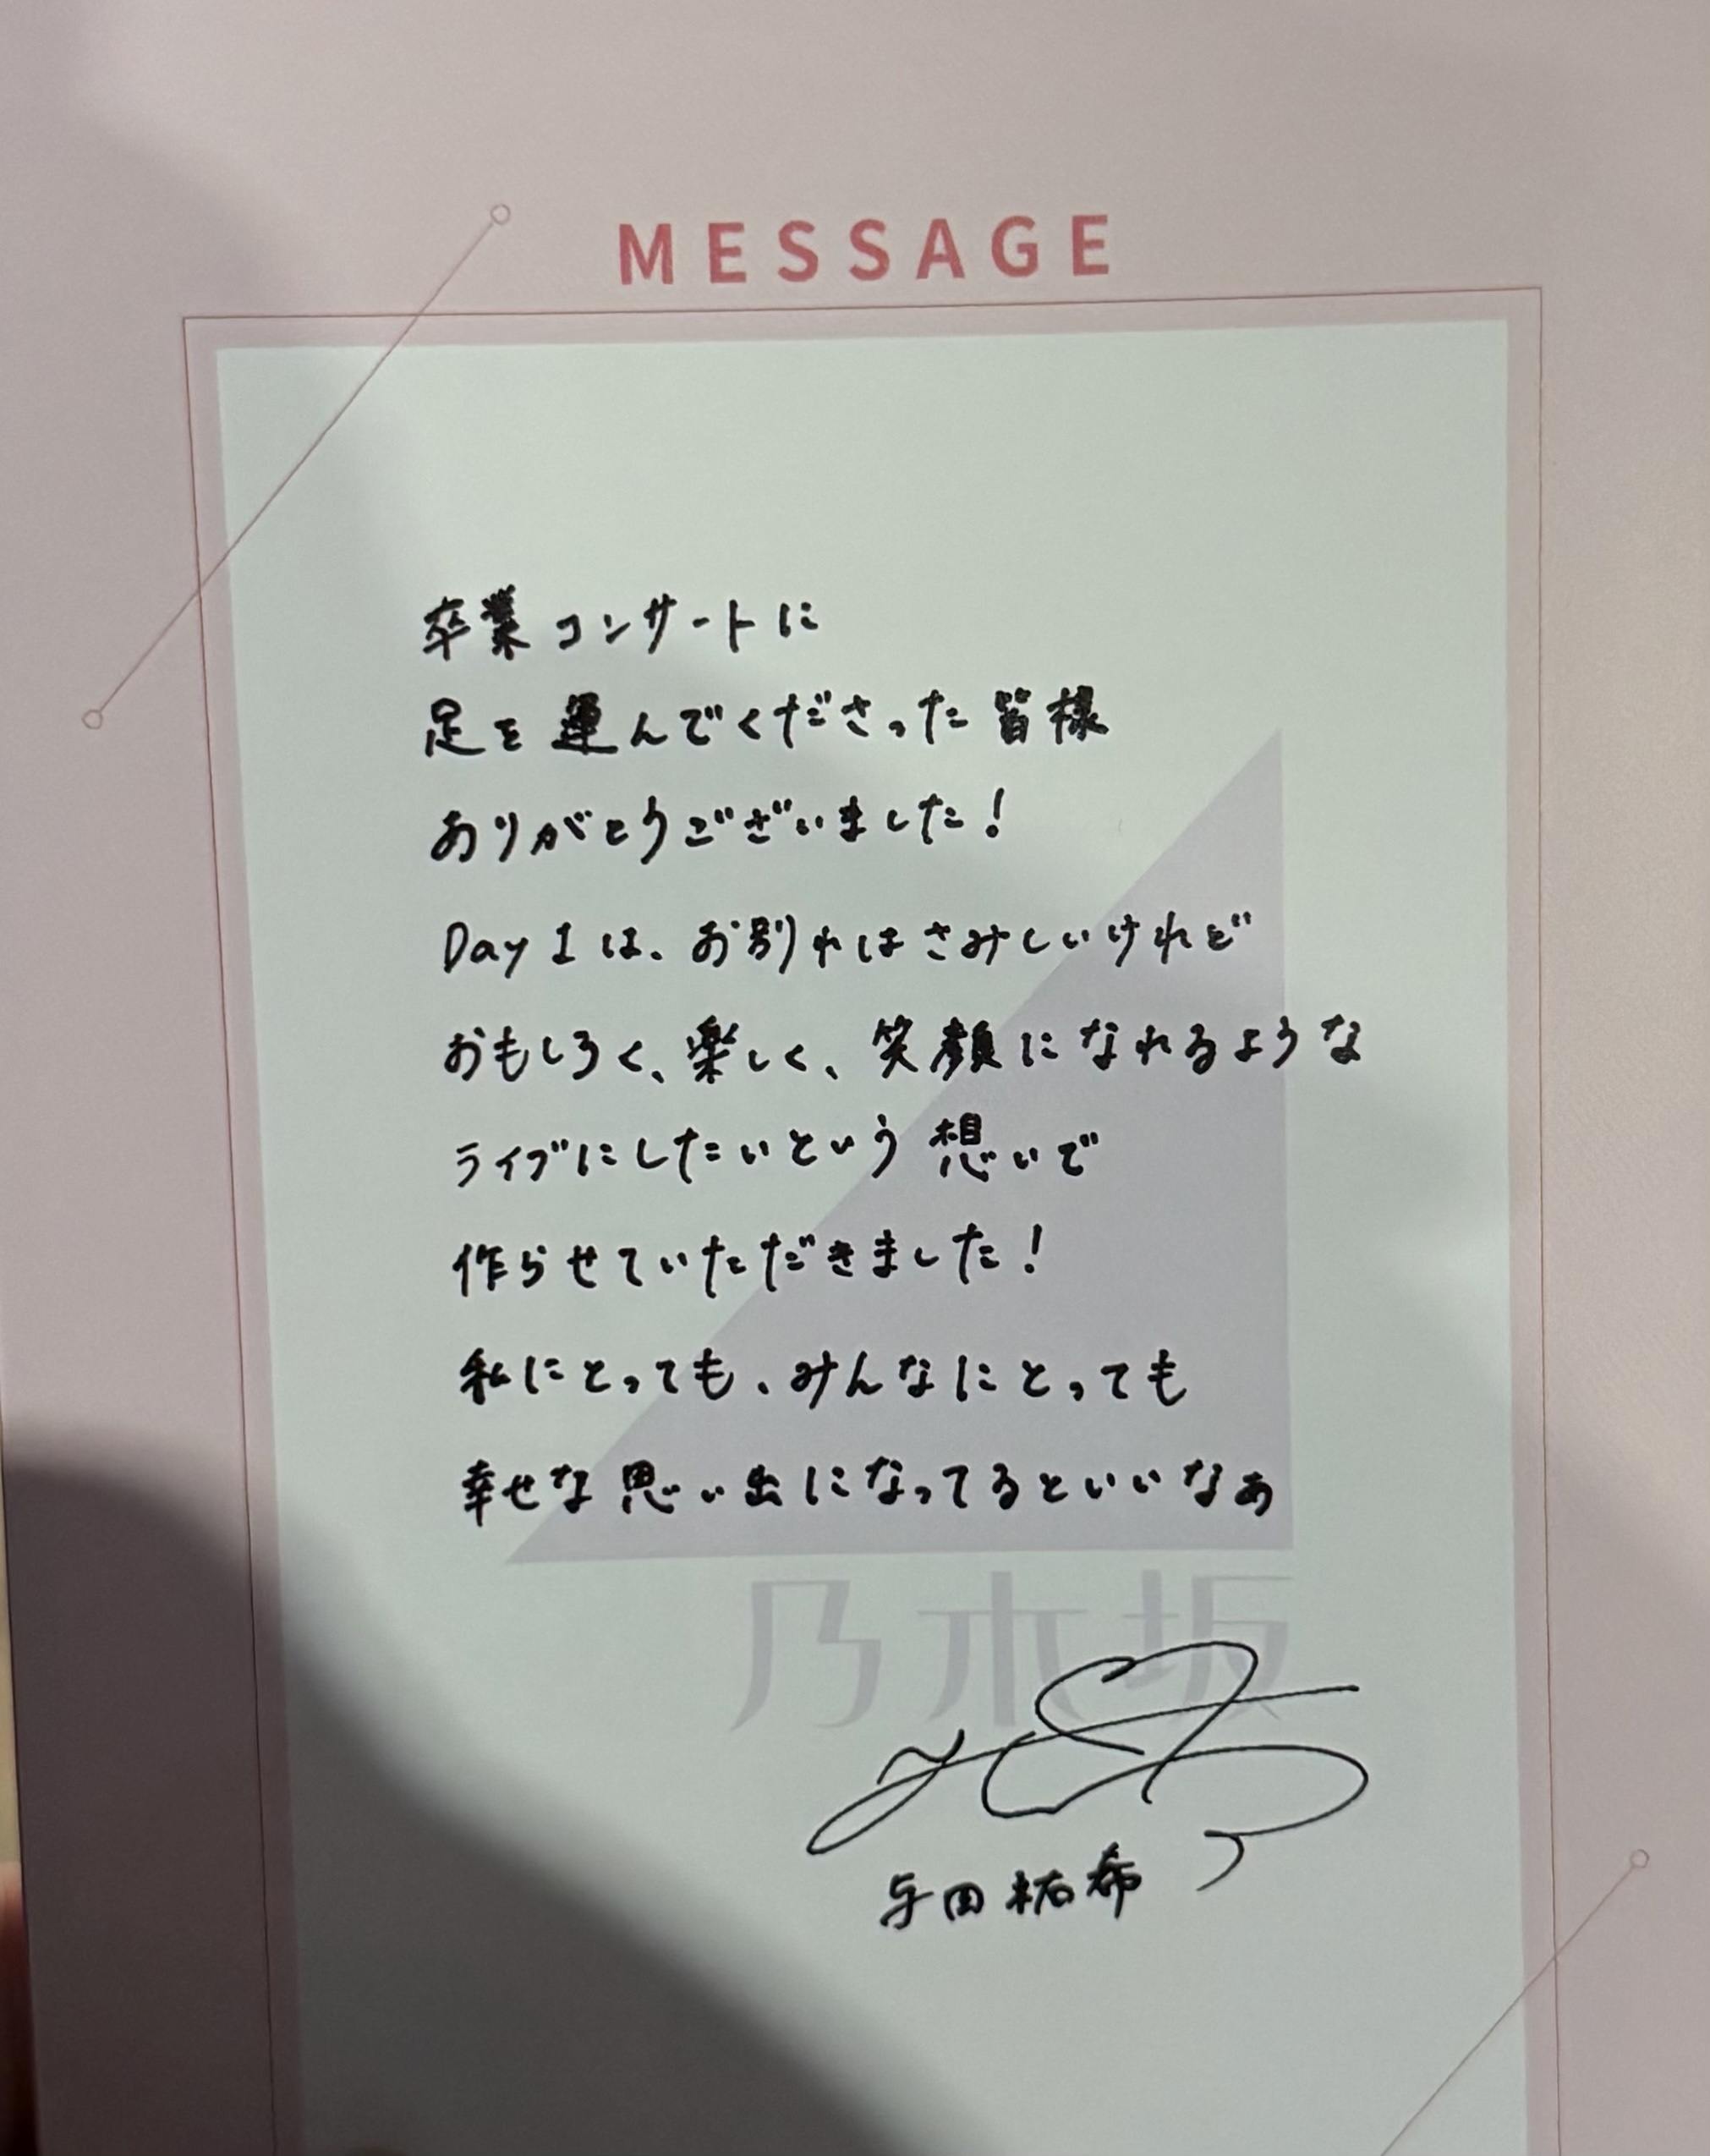 MESSAGE
卒業コンサートに
足を運んでくださった皆様
ありがとうございました!
Day1は、お別れはさみしいけれど
おもしろく、楽しく、笑顔になれるような
ライブにしたいという想いで
作らせていただきました!
私にとっても、みんなにとっても
幸せな思い出になってるといいなぁ
乃木坂
与田祐希